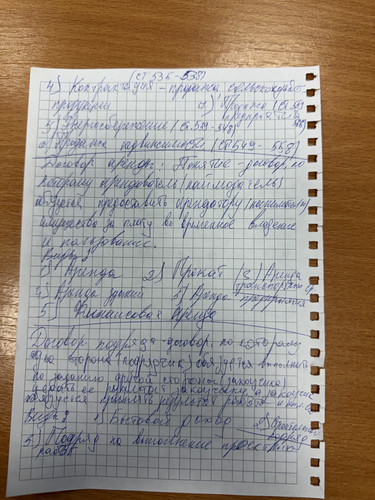 (ст 535-538)
4) Контрактация - продажа сельскохозяйст
продукции
7) Продажа (ст 559
предприятия
5) Энергоснабжение (ст. 539-548)
6) Продажа недвижимости (ст 549-558)
Договор аренды: Понятие - договор, по
которому арендодатель (наймодатель)
обязуется предоставить арендатору (нанимателю)
имущество за плату во временное владение
и пользование.
Виды:
1) Аренда 2) Прокат (3) Аренда
транспорта
4) Аренда зданий 5) Аренда предприятия
5) Финансовая аренда
Договор подряда - договор, по которому
одна сторона (подрядчик) обязуется выполнить
по заданию другой стороны (заказчика)
сдать ее результат заказчику, а заказчик
обязуется принять результат работы и
Виды: 1) Бытовой 2) Строительный
подряд
3) Подряд на выполнение проектных
работ